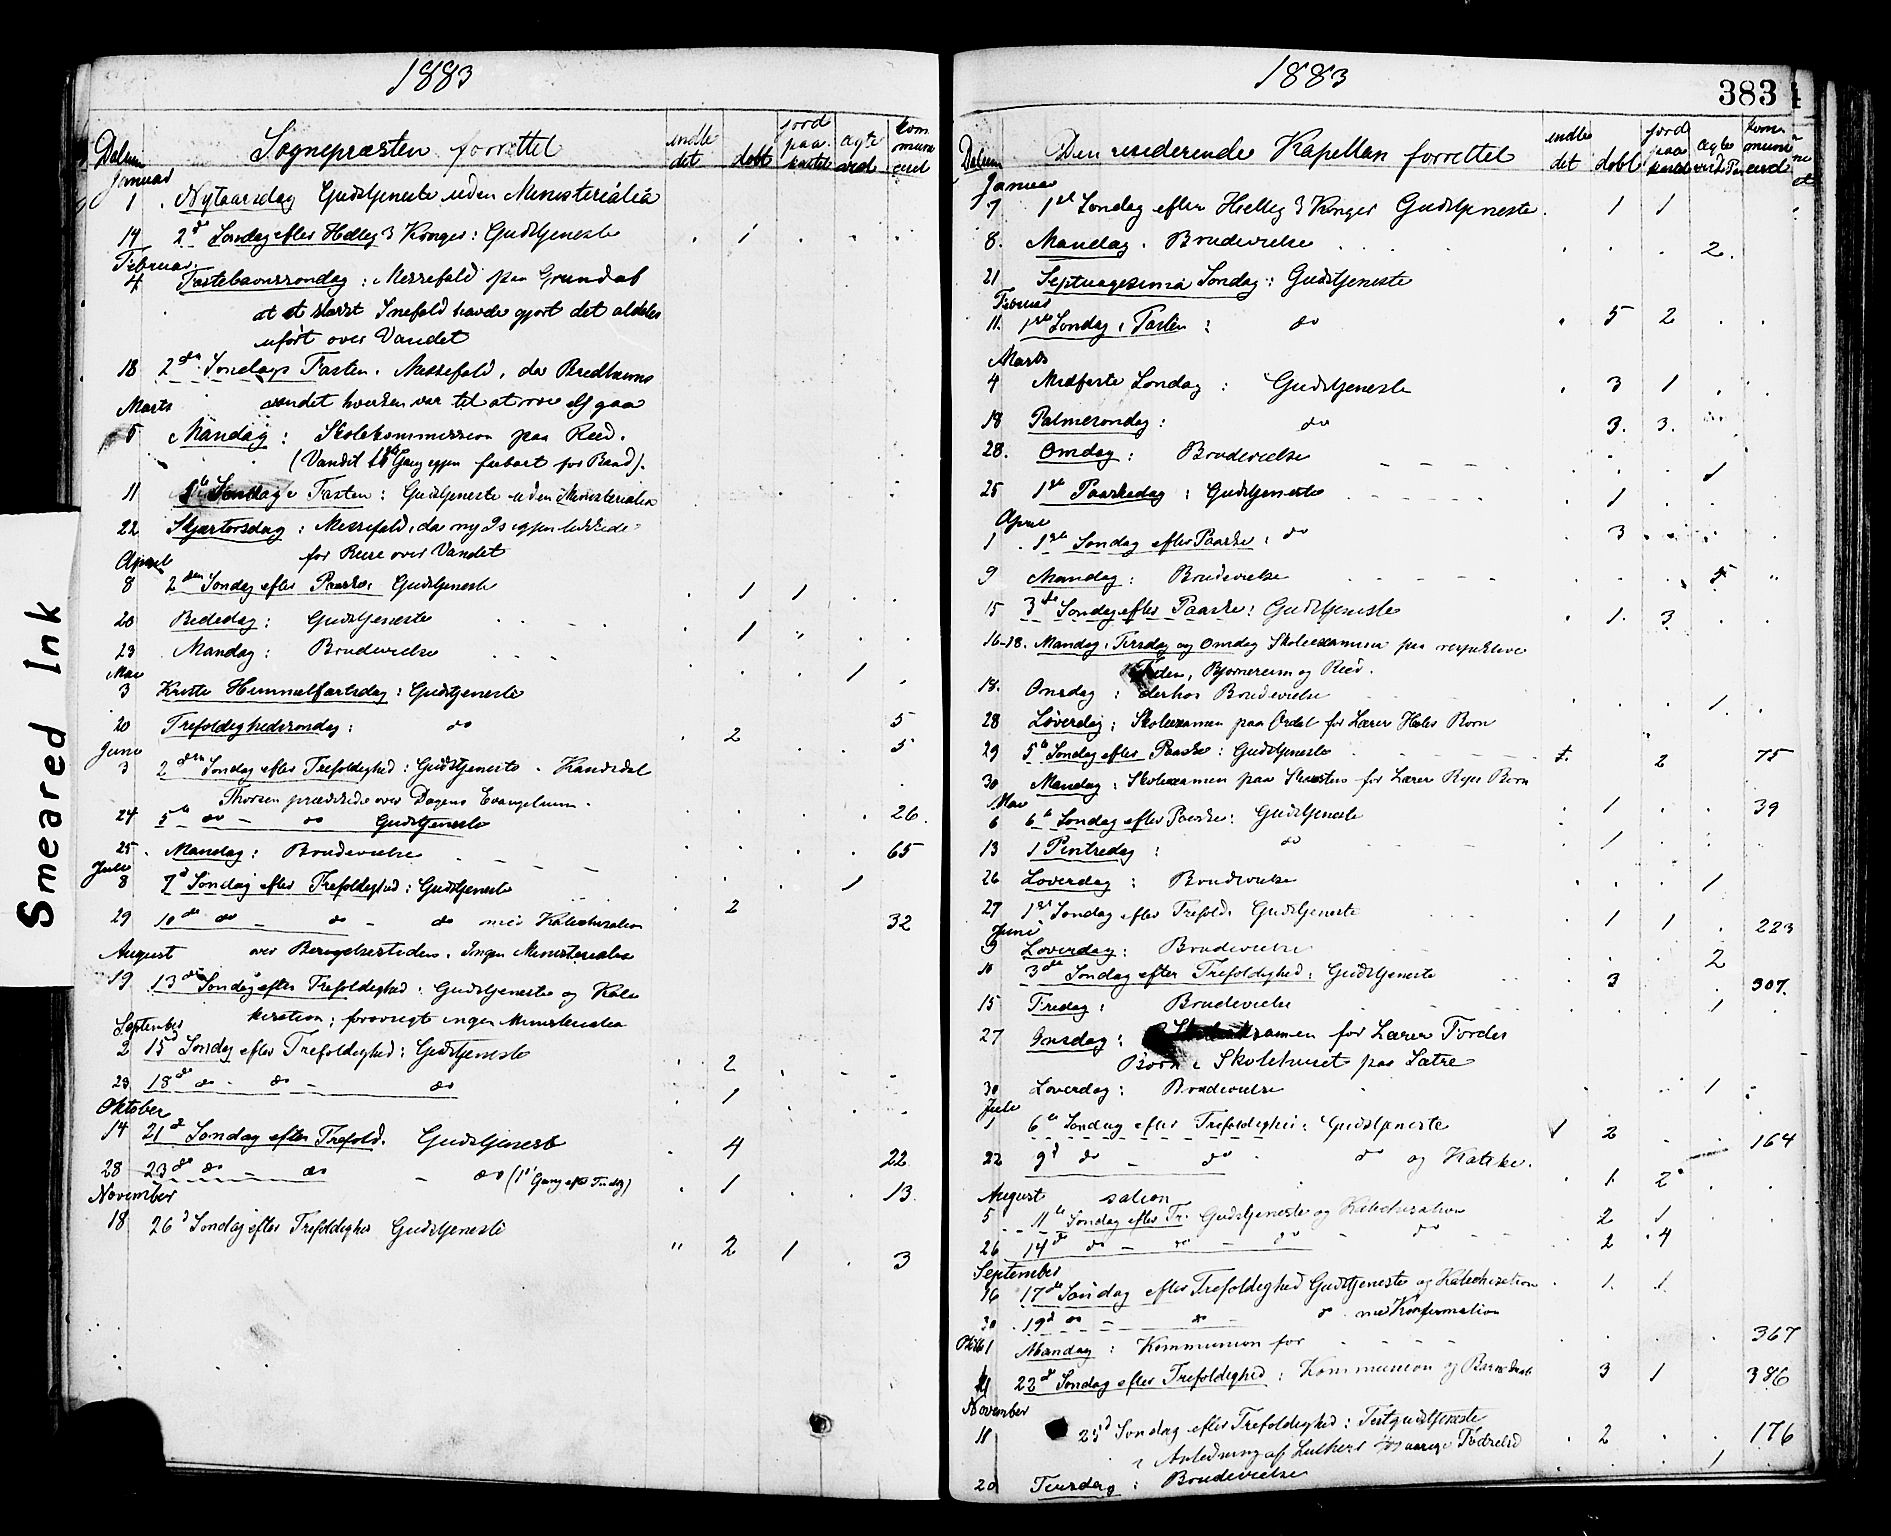 Smeared Ink
1883
Datum Sognepræsten forrettet indle det døbt jord paa kastet ægte viet kom mun ceret
Januar
1 Nytaarsdag Gudstjeneste uden Ministerialia
14 2d Søndag efter Hellig 3 Konger: Gudstjeneste 1
Februar
4 Fastelavnssøndag: Messefald paa Grund af
at et stærkt Snefald havde gjort det aldeles
uført over Vandet
18 2den Søndag i Fasten. Messefald, da Bredheims
vandet hverken var til at roe elf gaa
Marts
5 Mandag: Skolekommission paa Reed.
(Vandet Gang igjen farbart for Baad).
11 Søndag i Fasten: Gudstjeneste uden Ministerialia
22 Skjærtorsdag: Messefald, da ny Is igjen lukkede
for Reise over Vandet
April
8 2den Søndag efter Paaske: Gudstjeneste 1 1
20 Bededag: Gudstjeneste 1 "
23 Mandag: Brudevielse 1
Mai
3 Kristi Himmelfartsdag: Gudstjeneste
20 Trefoldighedssøndag: do 2 5
Juni 5
3 2den Søndag efter Trefoldighed: Gudstjeneste. Kandidat
Thorsen prædikede over Dagens Evangelium.
24 5te do - do Gudstjeneste 26.
25 Mandag: Brudevielse 65
Juli
8 7d Søndag efter Trefoldighed: Gudstjeneste 1
29 10de do - do - do med Katechisation 2 32
August over Ingen Ministerialia
19 13de Søndag efter Trefoldighed: Gudstjeneste og Kate
kisation; ingen Ministerialia
September
2 15d Søndag efter Trefoldighed: Gudstjeneste 2
23 18de do - do - do 1
Oktober
14 21d Søndag efter Trefold. Gudstjeneste 4 22
28 23de do - do - do (1te Gang efter) 1 13.
November
18 26d Søndag efter Trefoldighed Gudstjeneste " 2 1 3
1883 383
Datum Den residerende Kapellan forrettet indle det døbt jord paa kastet ægte viede Par kom muni cerede
Januar
7 1ste Søndag efter Hellig 3 Konger Gudstjeneste. 1 1
8. Mandag. Brudevielse 2.
21 Septuagesima Søndag: Gudstjeneste
Februar
11. 1ste Søndag i Fasten: do 5 2
Marts
4 Midfaste Søndag: Gudstjeneste 3 1
18 Palmesøndag: do 3. 3.
28. Onsdag: Brudevielse 1
25 1ste Paaskedag: Gudstjeneste 1
April
1 1ste Søndag efter Paaske: do 3
9 Mandag: Brudevielse "
15 3de Søndag efter Paaske: Gudstjeneste 1. 3
16-18. Mandag, Tirsdag og Onsdag Skoleexamen paa respektive
Bjørnereim og Reed.
18. Onsdag: derhos Brudevielse 1.
28 Løverdag: Skoleexamen paa Ordet for Lærer Børn
29 5te Søndag efter Paaske: Gudstjeneste 2 75
30 Mandag: Skoleexamen paa for Lærer Børn
Mai
6 6te Søndag efter Paaske: Gudstjeneste 1 39
13 1 Pintsedag: do 1
26 Løverdag: Brudevielse 1
27 1ste Søndag efter Trefold. Gudstjeneste 1 1 223
Juni
9 Løverdag: Brudevielse 2
10 3de Søndag efter Trefoldighed: Gudstjeneste 3 307.
15 Fredag: Brudevielse 1
27 Onsdag: Skoleexamen for Lærer Fordes
Børn i Skolehuset paa Sætre
30 Løverdag: Brudevielse 1
Juli
1 6te Søndag efter Trefoldighed: Gudstjeneste 1 2 164
22 9d do - do do og Kateke. 1 2
August sation
5 11te Søndag efter Tr. Gudstjeneste og Katechisation 2 1
26 14de do - do - do - do 2 4
September
16 17de Søndag efter Trefoldighed Gudstjeneste og Katechisation 1. 1.
30 19d do - do - do med Konfirmation
Oktb 1 Mandag: Kommunion for 367
22d Søndag efter Trefoldighed: Kommunion og Barnedaab 3 1 386
November
11 25d Søndag efter Trefoldighed: Festgudstjeneste 2 176
i Anledning af Luthers aarige Fødselsd 1
20 Tirsdag: Brudevielse